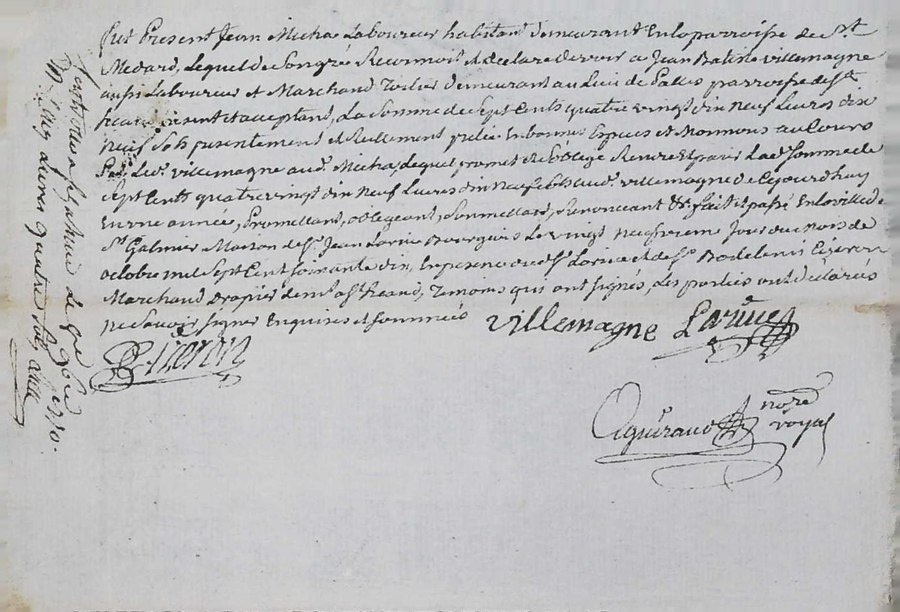 fut Present Jean Micha Laboureur habitant demeurant En la parroisse de St
Medard, Lequel de Son gré a Reconnoit et declare devoir a Jean Batiste villemagne
aussi Laboureur et Marchand demeurant au Lieu de parroisse de St
present et acceptant, La Somme de Sept Cents quatre vingt dix neuf Livres dix
neuf Sols presentement et Reellement En bonnes Espèces et Monnoies au Cours
Led. villemagne aud. Micha, Lequel promet et s'oblige Rendre Et paier Lad. Somme de
Sept Cents quatre vingt dix neuf Livres dix neuf sols aud. villemagne de Cejourdhuy
En une année, Promettant, obligeant, Soumettant, Renonceant & fait et passé En la ville de
St Galmier Maison de Sr. Jean Larive Bourgeois Le vingt Jour du Mois de
octobre mil Sept Cent Soixante dix, En presence dud. Sr Larive et de Sr
Marchand drapier dem.t a St temoins qui ont signés, Les parties ont declarés
ne Savoir Signer Enquises et Sommées
villemagne Larive
nore
royal
octobre 1770.
Livres quatre sols